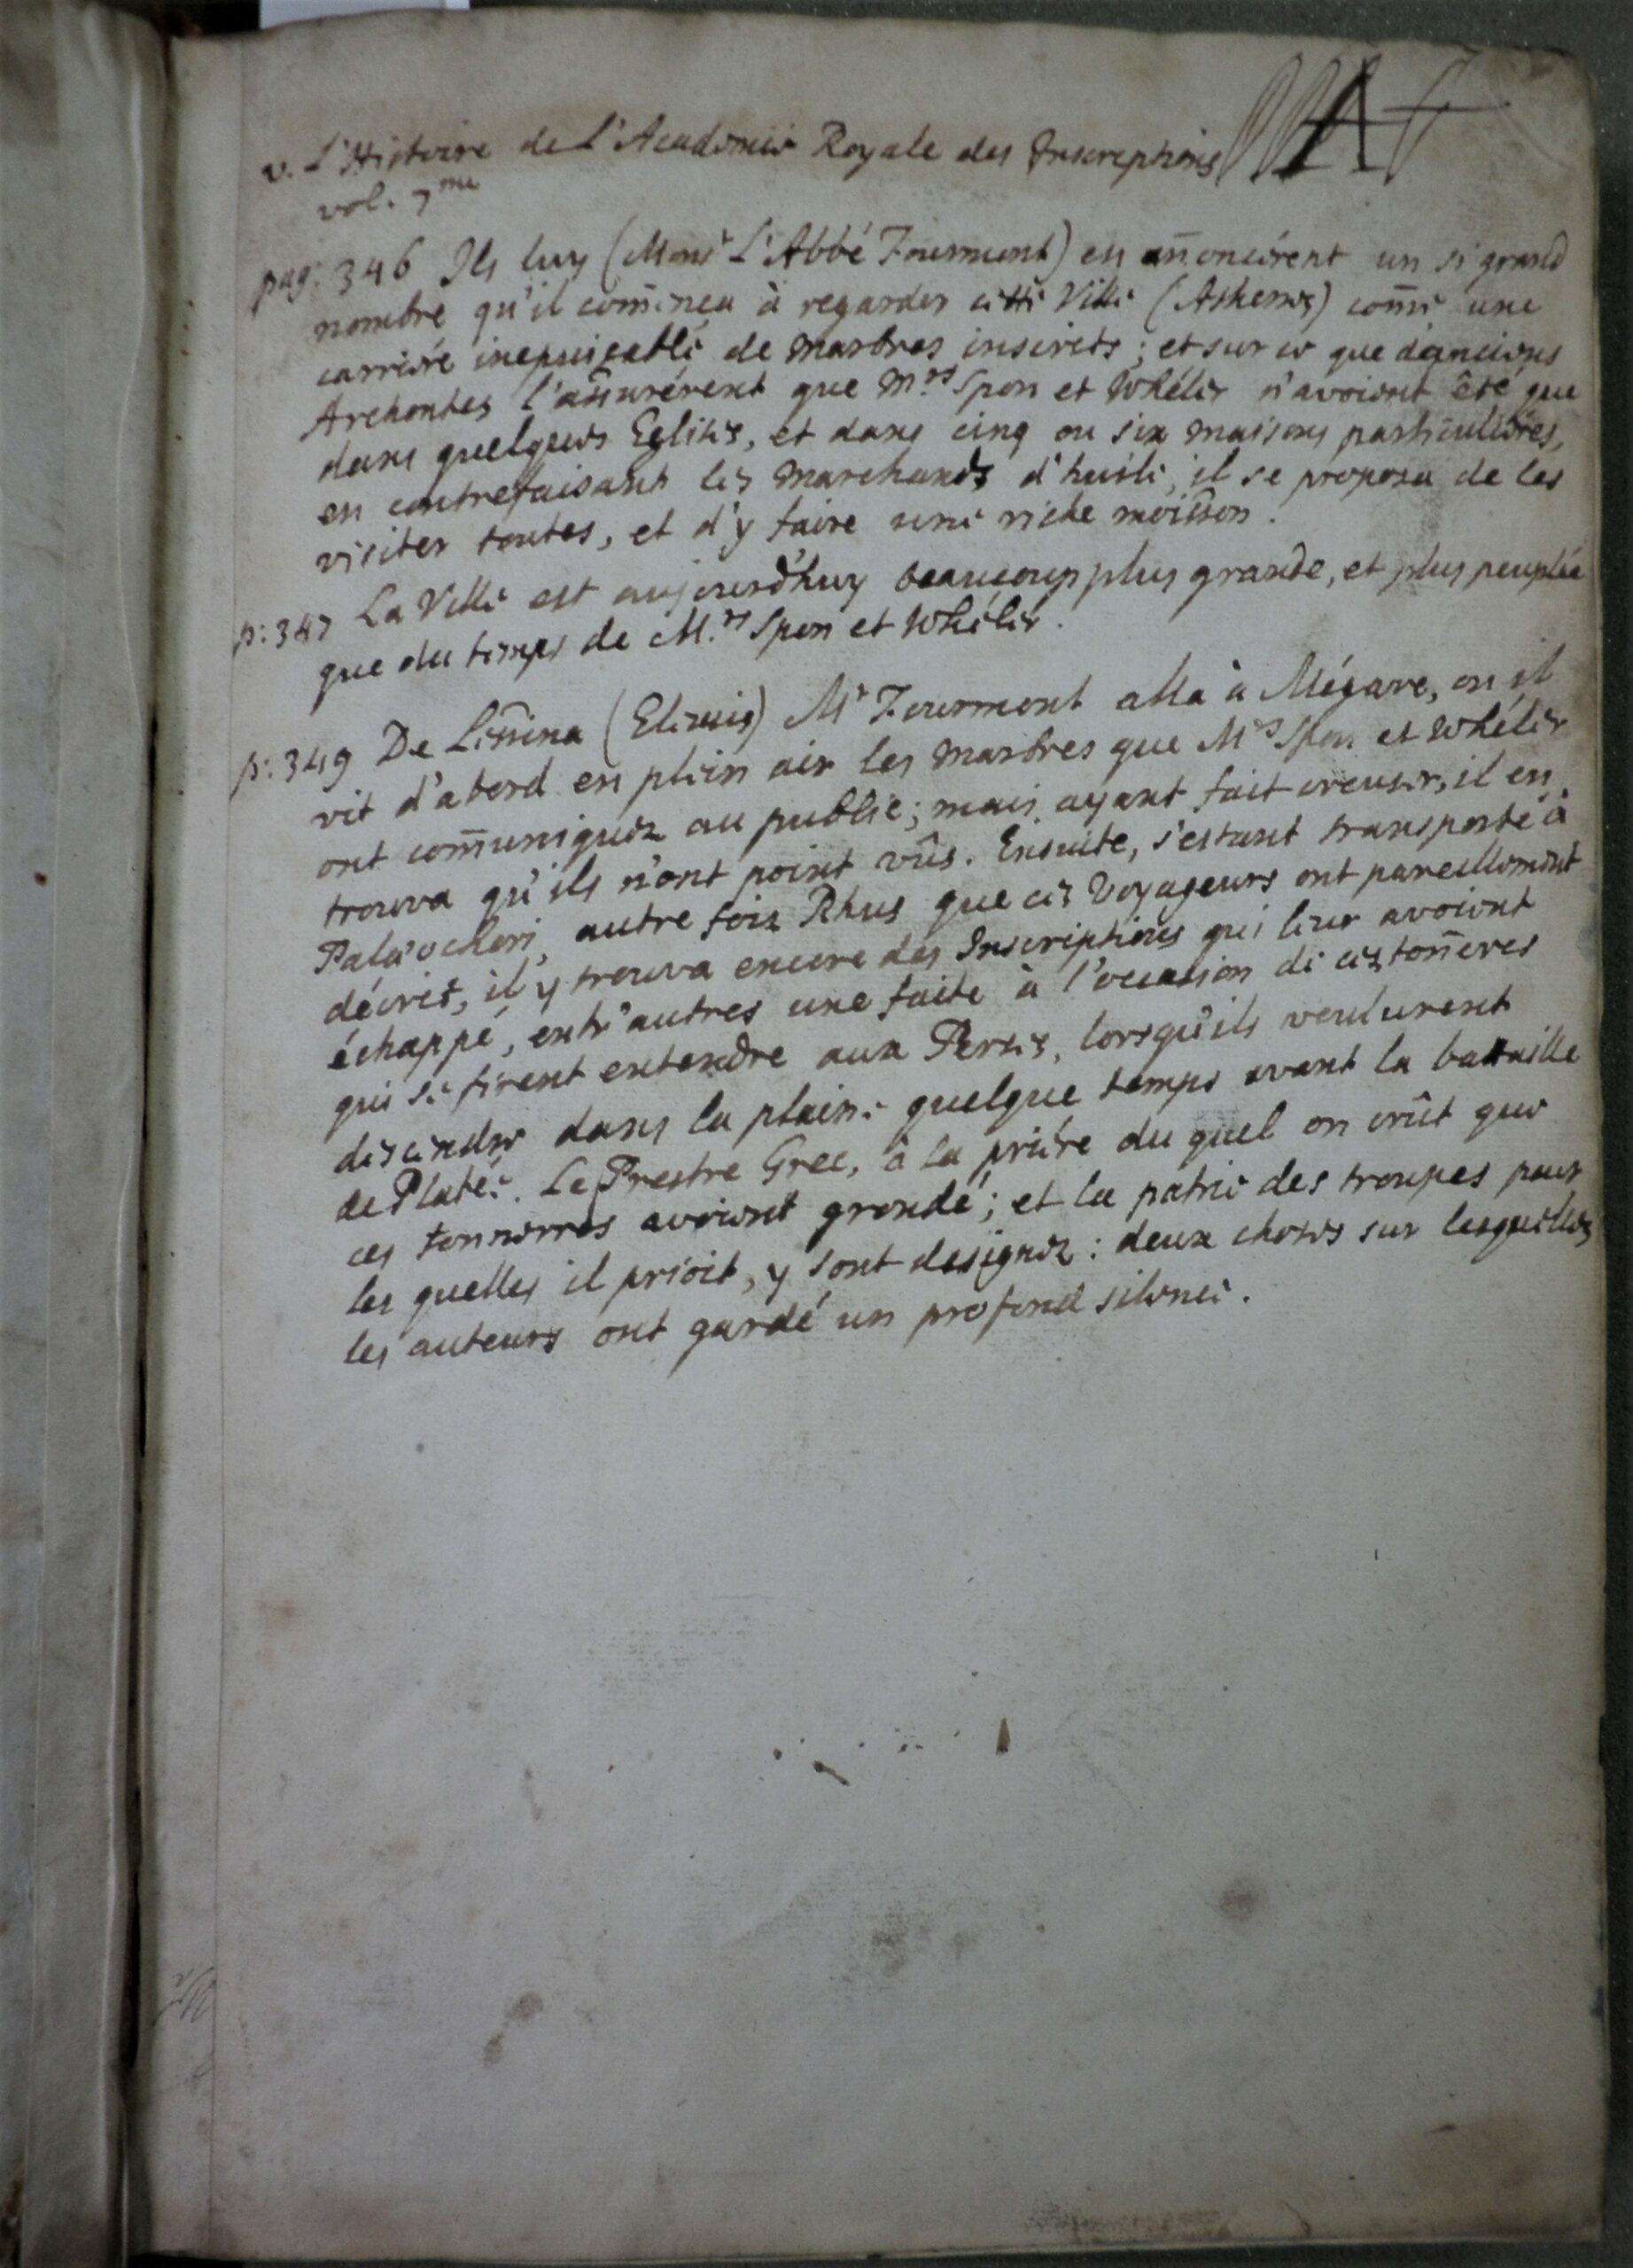 v. L'Histoire de L'Academie Royale des Inscriptions
vol. 7me
pag: 346 Ils luy (Monsr L'Abbé Fourmont) en anoncérent un si grand
nombre qu'il comença à regarder cette Ville (Athenes) come une
carriére inepuisable de Marbres inscrits; et sur ce que d'anciens
Archontes l'assurérent que Mrs Spon et Whéler n'avoient été que
dans quelques Eglises, et dans cinq ou six maisons particulières,
en contrefaisant les Marchands d'huile, il se proposa de les
visiter toutes, et d'y faire une riche moisson.
p: 347 La Ville est aujourd'huy beaucoup plus grande, et plus peuplée
que du temps de M.rs Spon et Whélér.
p: 349 De Lessina (Eleusis) Mr Fourmont alla à Mégare, ou il
vit d'abord en plein air les Marbres que Mrs Spon et Whélér
ont comuniquez au public; mais ayant fait creuser, il en
trouva qu'ils n'ont point vûs. Ensuite, s'estant transporté à
Palæochori, autre fois Rhus que ces Voyageurs ont pareillement
décrit, il y trouva encore des Inscriptions qui leur avoient
échappé, entr'autres une faite à l'occasion de ces toneres
qui se firent entendre aux Perses, lorsqu'ils voulurent
descendre dans la plaine quelque temps avant la bataille
de Platée. Le Prestre Grec, à la priére du quel on crût que
ces tonnerres avoient grondé; et la patrie des troupes pour
les quelles il prioit, y sont designez: deux choses sur lesquelles
les auteurs ont gardé un profond silence.